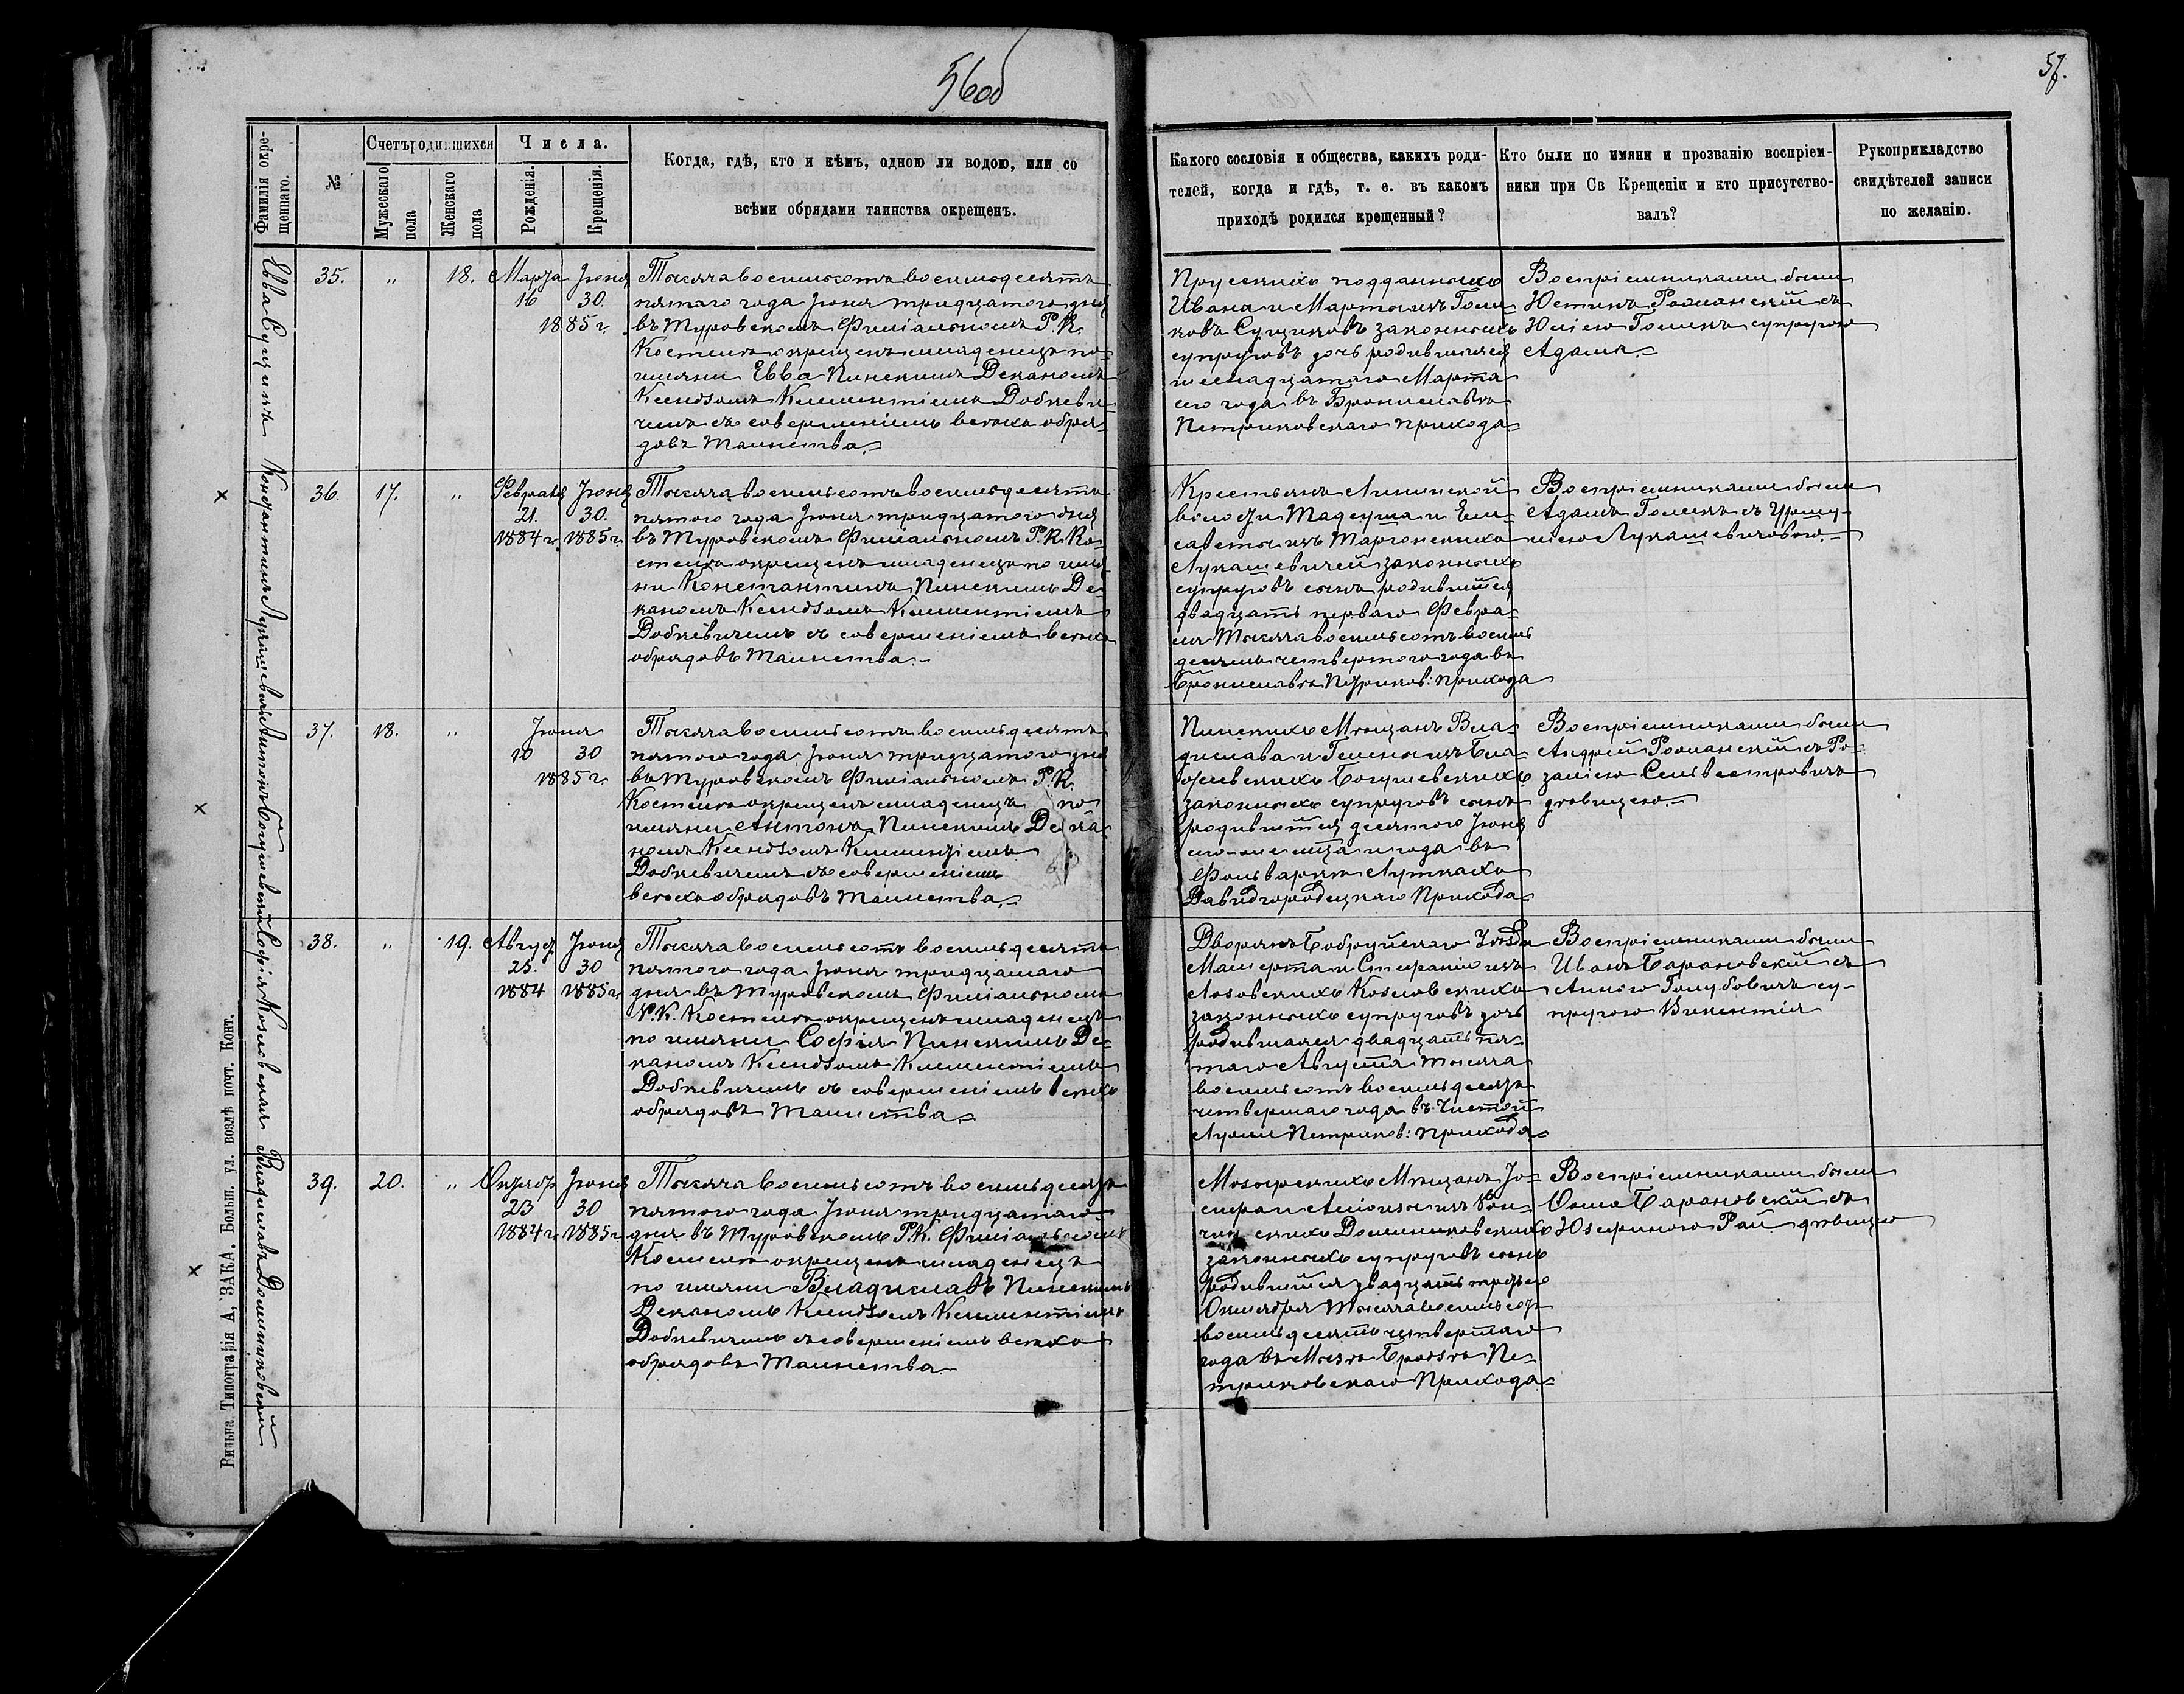 56об
57.
Фамилія окрещеннаго.
№
Счетъ родившихся
Мужескаго пола
Женскаго пола
Числа.
Рожденія.
Крещенія.
Когда, гдѣ, кто и кѣмъ, одною ли водою, или со
всѣми обрядами таинства окрещенъ.
Какого сословія и общества, какихъ роди-
телей, когда и гдѣ, т. е. въ какомъ
приходѣ родился крещенный?
Кто были по имяни и прозванію воспріем-
ники при Св Крещеніи и кто присутство-
валъ?
Рукоприкладство
свидѣтелей записи
по желанію.
Евва Сущикъ
35.
"
18.
Марта 16
Іюня 30.
1885 г.
Тысяча восемьсотъ восемьдесятъ
пятаго года Іюня тридцатого дня
въ Туровскомъ Филіальномъ Р. К.
Костелѣ окрещенъ младенецъ по
имяни Евва Пинскимъ Деканомъ
Ксендзомъ Климентіемъ Добкеви-
чемъ съ совершеніемъ всѣхъ обря-
довъ Таинства.
Прусскихъ подданныхъ
Ивана и Марты изъ
Сущиковъ законныхъ
супруговъ дочь родившаяся
шеснадцатаго Марта
сего года въ Брониславѣ
Петриковскаго прихода
Воспріемниками были
Юстинъ Романскій съ
Юліею супругою
Адама.
Константинъ Лукашевичъ
36.
17.
"
Февраля 21. 1884 г.
Іюня 30. 1885 г.
Тысяча восемьсотъ восемьдесятъ
пятого года Іюня тридцатого дня
въ Туровскомъ Филіальномъ Р. К. Ко-
стелѣ окрещенъ младенецъ по имя
ни Константинъ Пинскимъ Де-
каномъ Ксендзомъ Климентіемъ
Добкевичемъ съ совершеніемъ всѣхъ
обрядовъ Таинства.
Крестьянъ
волости Тадеуша и Ели-
саветы изъ
Лукашевичей законныхъ
супруговъ сынъ родившійся
двадцать перваго Февра-
ля Тысяча восемьсотъ восемь
десятъ четвертого года въ
Брониславѣ Петриков: прихода
Воспріемниками были
Адамъ съ Уршу-
лею Лукашевичовою.
Антонъ Богушевскій
37.
18.
"
Іюня
10
30
1885 г.
Тысяча восемьсотъ восемьдесятъ
пятого года Іюня тридцатого дня
въ Туровскомъ Филіальномъ Р. К.
Костелѣ окрещенъ младенецъ по
имяни Антонъ Пинскимъ Дека-
номъ Ксендзомъ Климентіемъ
Добкевичемъ съ совершеніемъ
всѣхъ обрядовъ Таинства.
Пинскихъ Мѣщанъ Вла-
дислава и изъ
Богушевскихъ
законныхъ супруговъ сынъ
родившійся десятого Іюня
сего мѣсяца и года въ
Фольваркѣ
Давидгородецкаго Прихода
Воспріемниками были
Андрей Романскій съ Ро-
заліею Сельвестровичъ
дѣвицею.
Софія Козловская
38.
"
19.
Август 25. 1884
Іюня 30 1885 г.
Тысяча восемьсотъ восемьдесятъ
пятого года Іюня тридцатаго
дня въ Туровскомъ Филіальномъ
Р. К. Костелѣ окрещенъ младенецъ
по имяни Софія Пинскимъ Де-
каномъ Ксендзомъ Климентіемъ
Добкевичемъ съ совершеніемъ всѣхъ
обрядовъ Таинства.
Дворянъ Бобруйскаго Уѣзда
и Стефаніи изъ
Козловскихъ
законныхъ супруговъ дочь
родившаяся двадцать пя-
таго Августа тысяча
восемьсотъ восемьдесятъ
четвертаго года въ Чистой
Лужи Петриков: прихода
Воспріемниками были
Иванъ Барановскій съ
Анною Голубовичъ су-
пругою Викентія
Владиславъ Доминиковскій
39.
20.
"
Октябр 23 1884 г.
Іюня 30 1885 г.
Тысяча восемьсотъ восемьдесятъ
пятого года Іюня тридцатаго
дня въ Туровскомъ Р. К. Филіальномъ
Костелѣ окрещенъ младенецъ
по имяни Владиславъ Пинскимъ
Деканомъ Ксендзомъ Климентіемъ
Добкевичемъ съ совершеніемъ всѣхъ
обрядовъ Таинства.
Мозырскихъ Мѣщанъ Іо-
сифа и изъ
Доминиковскихъ
законныхъ супруговъ сынъ
родившійся двадцать третьего
Октября Тысяча восемьсотъ
восемьдесятъ четвертаго
года въ Пе-
триковскаго Прихода
Воспріемниками были
Ѳома Барановскій съ
Юзефиною Рай дѣвицею
Вильна. Типографія А, ЗАКА. Больш. ул. возлѣ почт. Конт.